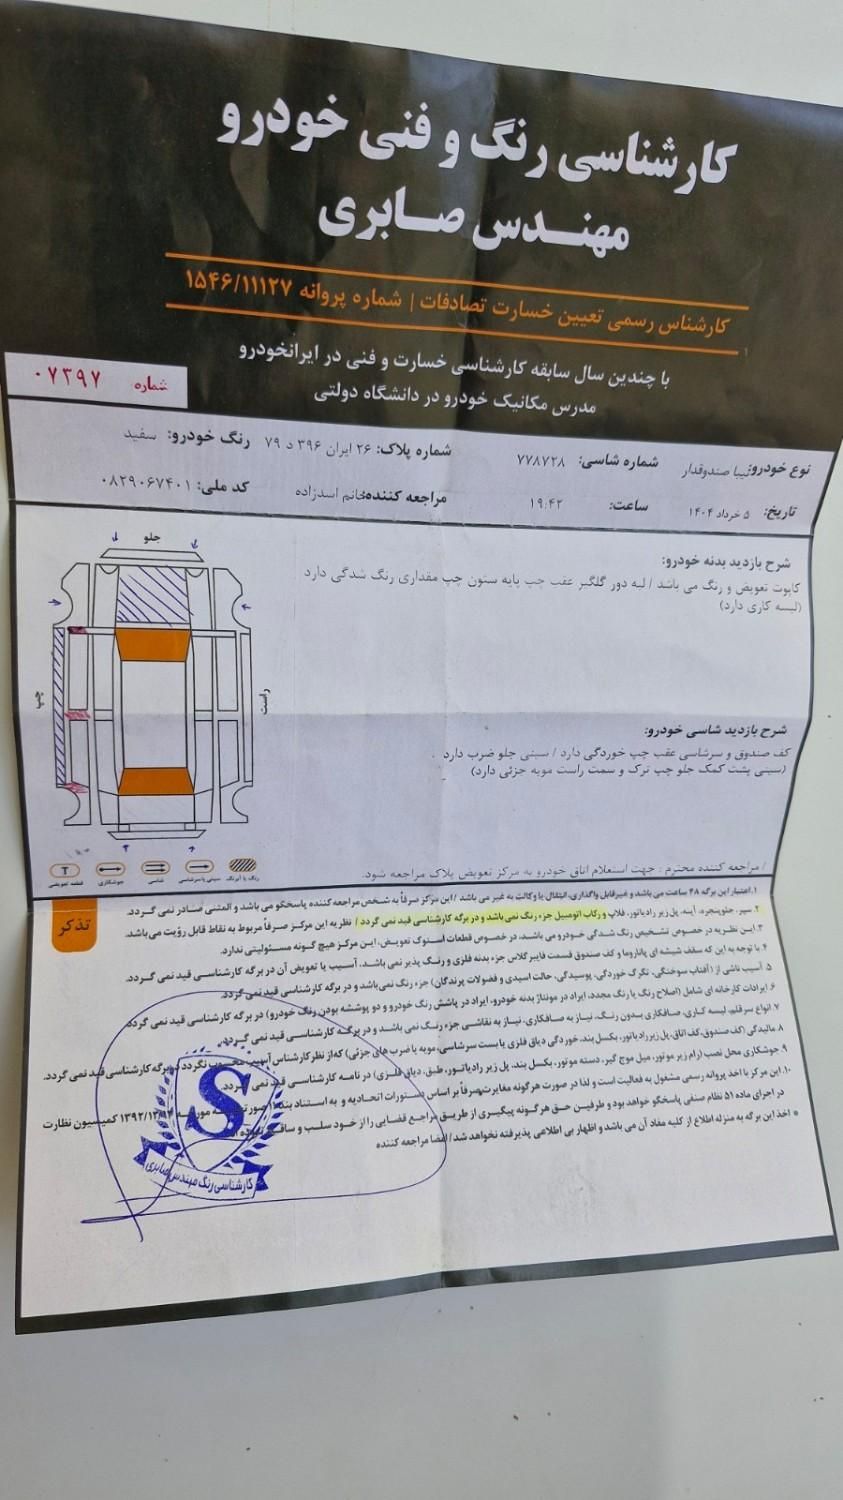 کارشناسی رنگ و فنی خودرو
مهندس صابری
کارشناس رسمی تعیین خسارت تصادفات | شماره پروانه ۱۵۴۶/۱۱۱۲۷
با چندین سال سابقه کارشناسی خسارت و فنی در ایرانخودرو
مدرس مکانیک خودرو در دانشگاه دولتی
شماره ۰۷۳۹۷
نوع خودرو: تیبا صندوقدار شماره شاسی: ۷۷۸۷۲۸ شماره پلاک: ۲۶ ایران ۳۹۶ د ۷۹ رنگ خودرو: سفید
تاریخ: ۵ خرداد ۱۴۰۴ ساعت: ۱۹:۴۲ مراجعه کننده: خانم اسدزاده کد ملی: ۰۸۲۹۰۶۷۴۰۱
شرح بازدید بدنه خودرو:
کاپوت تعویض و رنگ می باشد / لبه دور گلگیر عقب چپ پایه ستون چپ مقداری رنگ شدگی دارد
(لیسه کاری دارد)
جلو
چپ
راست
شرح بازدید شاسی خودرو:
کف صندوق و سرشاسی عقب چپ خوردگی دارد / سینی جلو ضرب دارد .
(سینی پشت کمک جلو چپ ترک و سمت راست مویه جزئی دارد)
/ مراجعه کننده محترم : جهت استعلام اتاق خودرو به مرکز تعویض پلاک مراجعه شود.
رنگ یا آبرنگ
سینی یا سرشاسی
شاسی
جوشکاری
T
قطعه تعویضی
تذکر
۱. اعتبار این برگه ۴۸ ساعت می باشد و غیرقابل واگذاری، انتقال یا وکالت به غیر می باشد / این مرکز صرفاً به شخص مراجعه کننده پاسخگو می باشد و المثنی صادر نمی گردد.
۲. سپر، جلوپنجره، آینه، پل زیر رادیاتور، فلاپ و رکاب اتومبیل جزء رنگ نمی باشد و در برگه کارشناسی قید نمی گردد / نظریه این مرکز صرفاً مربوط به نقاط قابل رؤیت می باشد.
۳. این نظریه در خصوص تشخیص رنگ شدگی خودرو می باشد، در خصوص قطعات استوک تعویض، این مرکز هیچ گونه مسئولیتی ندارد.
۴. با توجه به این که سقف شیشه ای پاناروما و کف صندوق قسمت فایبر گلاس جزء بدنه فلزی و رنگ پذیر نمی باشد، آسیب یا تعویض آن در برگه کارشناسی قید نمی گردد.
۵. آسیب ناشی از (آفتاب سوختگی، تگرگ خوردگی، پوسیدگی، حالت اسیدی و فضولات پرندگان) جزء رنگ نمی باشد و در برگه کارشناسی قید نمی گردد.
۶. ایرادات کارخانه ای شامل (اصلاح رنگ یا رنگ مجدد، ایراد در مونتاژ بدنه خودرو، ایراد در پاشش رنگ خودرو و دو پوششه بودن رنگ خودرو) در برگه کارشناسی قید نمی گردد.
۷. انواع سرقلم، لیسه کاری، صافکاری بدون رنگ، نیاز به صافکاری، نیاز به نقاشی جزء رنگ نمی باشد و در برگه کارشناسی قید نمی گردد.
۸. مالیدگی (کف صندوق، کف اتاق، پل زیر رادیاتور، بکسل بند، خوردگی دیاق فلزی یا بست سرشاسی، مویه یا ضرب های جزئی) که از نظر کارشناس آسیب محسوب نگردد در برگه کارشناسی قید نمی گردد.
۹. جوشکاری محل نصب (رام زیر موتور، میل موج گیر، دسته موتور، بکسل بند، پل زیر رادیاتور، طبق، دیاق فلزی) در نامه کارشناسی قید نمی گردد.
۱۰. این مرکز با اخذ پروانه رسمی مشغول به فعالیت است و لذا در صورت هرگونه مغایرت صرفاً بر اساس دستورات اتحادیه و به استناد بند ۱ صورتجلسه مورخه ۱۳۹۲/۱۲/ کمیسیون نظارت
در اجرای ماده ۵۱ نظام صنفی پاسخگو خواهد بود و طرفین حق هرگونه پیگیری از طریق مراجع قضایی را از خود سلب و ساقط
* اخذ این برگه به منزله اطلاع از کلیه مفاد آن می باشد و اظهار بی اطلاعی پذیرفته نخواهد شد / امضا مراجعه کننده
S
کارشناسی رنگ مهندس صابری